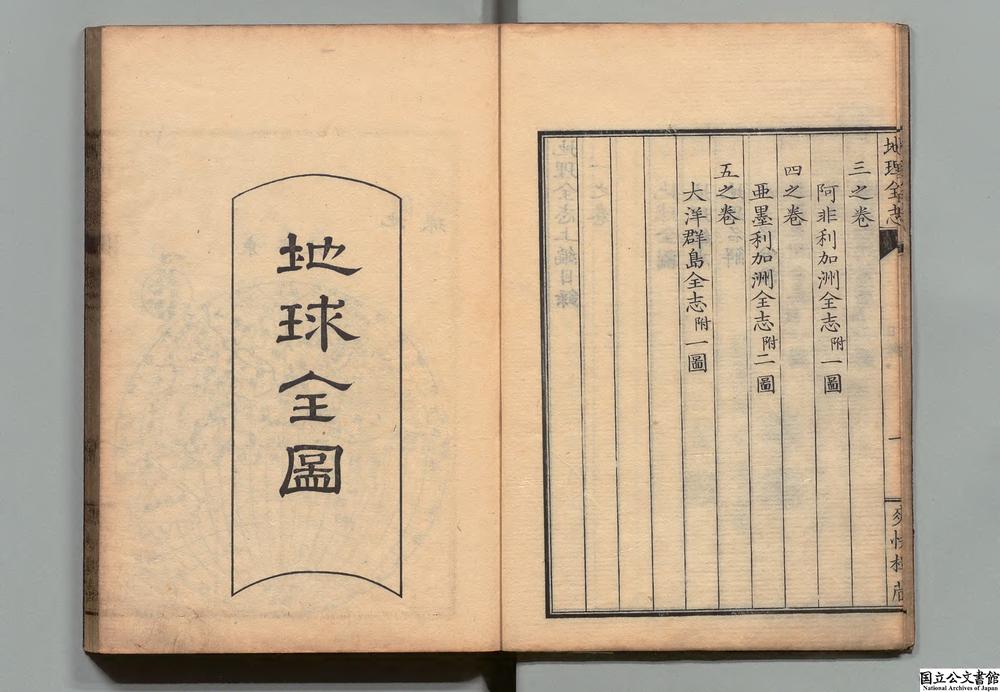 地理全志
一
三之卷
阿非利加洲全志附一圖
四之卷
亜墨利加洲全志附二圖
五之卷
大洋群島全志附一圖
地球全圖
国立公文書館
National Archives of Japan